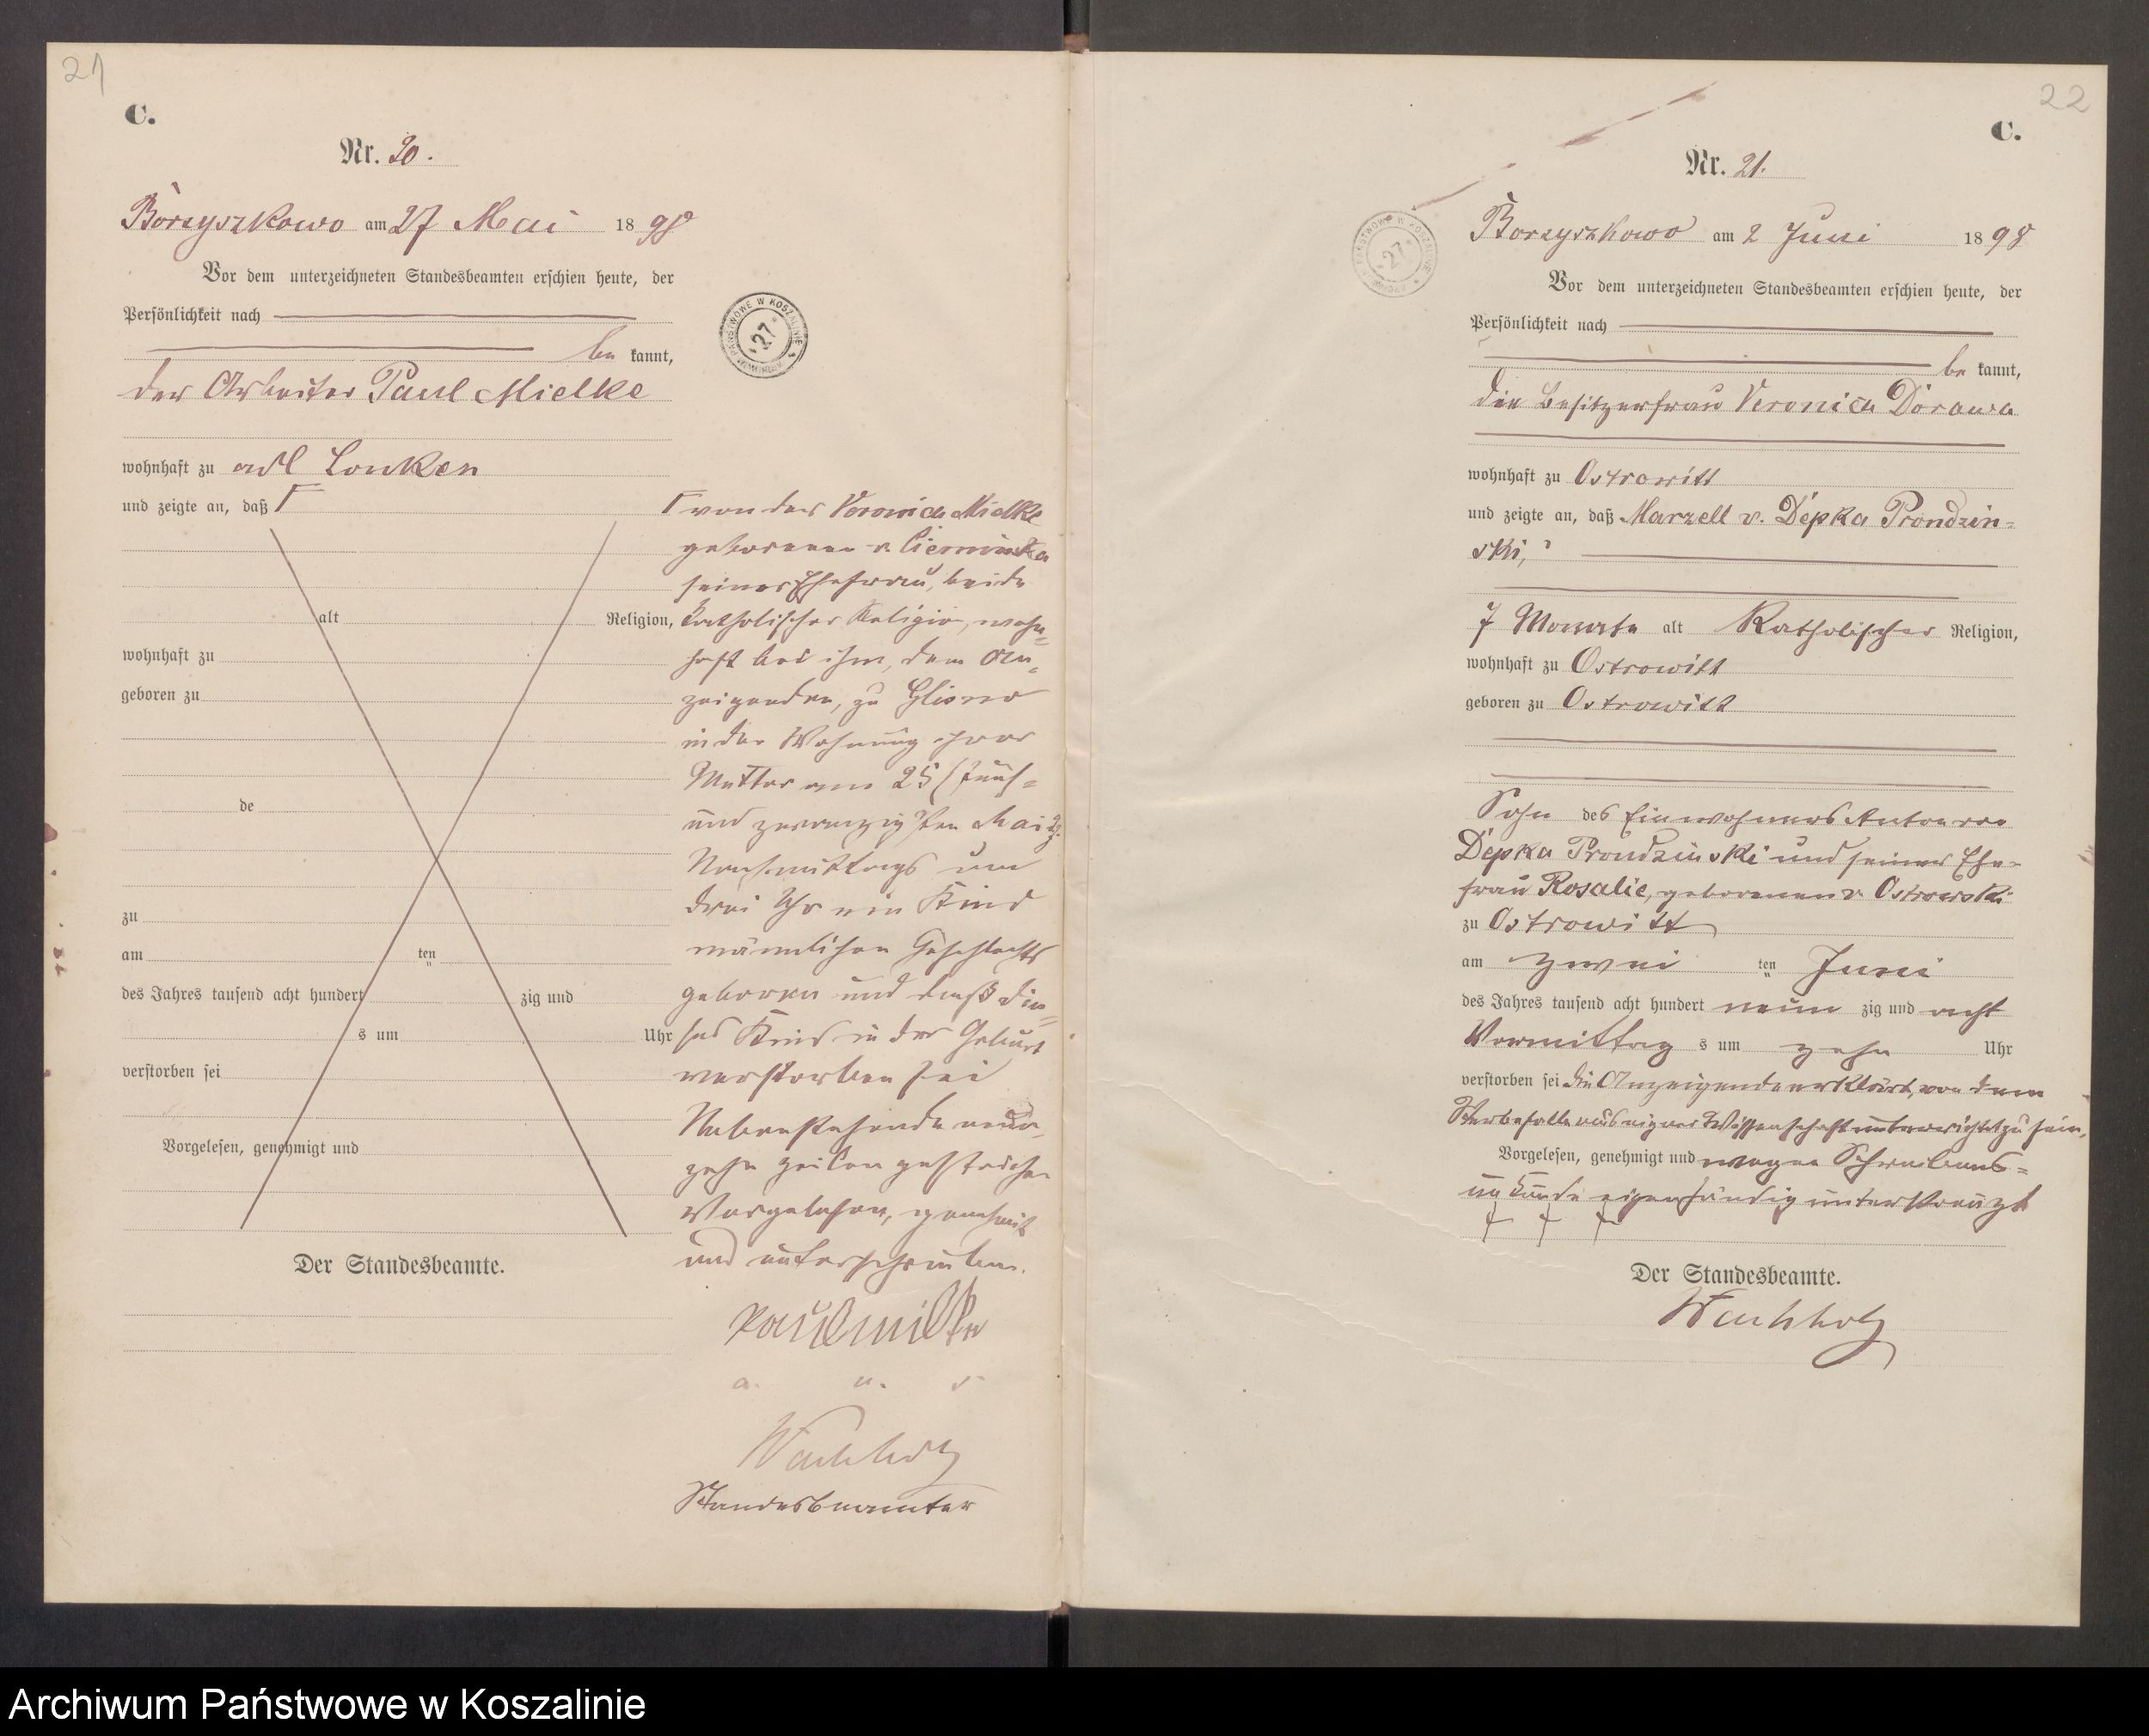 21
C.
Nr. 20.
Borzyszkowo am 27 Mai 1898
Vor dem unterzeichneten Standesbeamten erschien heute, der
Persönlichkeit nach
be kannt,
der Arbeiter Paul Mielke
wohnhaft zu adl Lonken
und zeigte an, daß Γ
alt Religion,
wohnhaft zu
geboren zu
de
zu
am ten
des Jahres tausend acht hundert zig und
s um Uhr
verstorben sei
Vorgelesen, genehmigt und
Der Standesbeamte.
Γ von der Veronica Mielke
geborenen v. Cierminska
seiner Ehefrau, beide
katholischer Religion, wohn=
haft bei ihm, dem An=
zeigenden, zu Glisno
in der Wohnung ihrer
Mutter am 25 (fünf=
und zwanzig)sten Mai
Nachmittags um
drei Uhr ein Kind
männlichen Geschlechts
geboren und daß die=
ses Kind in der Geburt
verstorben sei
Nebenstehende neun=
zehn Zeilen gestrichen
Vorgelesen, genehmigt
und unterschrieben.
Paul Milke
a. u. s
Wachholz
Standesbeamter
ARCHIWUM PAŃSTWOWE W KOSZALINIE
*27*
22
C.
Nr. 21.
Borzyszkowo am 2 Juni 1898
Vor dem unterzeichneten Standesbeamten erschien heute, der
Persönlichkeit nach
be kannt,
die Besitzerfrau Veronica Dorawa
wohnhaft zu Ostrowitt
und zeigte an, daß Marzell v. Depka Prondzin=
ski,
7 Monate alt Katholischer Religion,
wohnhaft zu Ostrowitt
geboren zu Ostrowitt
Sohn des Einwohners Anton von
Depka Prondzinski und seiner Ehe=
frau Rosalie, geborenen v. Ostrowski
zu Ostrowitt
am zwei ten Juni
des Jahres tausend acht hundert neun zig und acht
Vormittag s um zehn Uhr
verstorben sei die Anzeigende erklärt, von dem
Sterbefalle aus eigner Wissenschaft unterrichtet zu sein.
Vorgelesen, genehmigt und wegen Schreibens=
unkunde eigenhändig unterkreuzt
† † †
Der Standesbeamte.
Wachholz
*27*
Archiwum Państwowe w Koszalinie